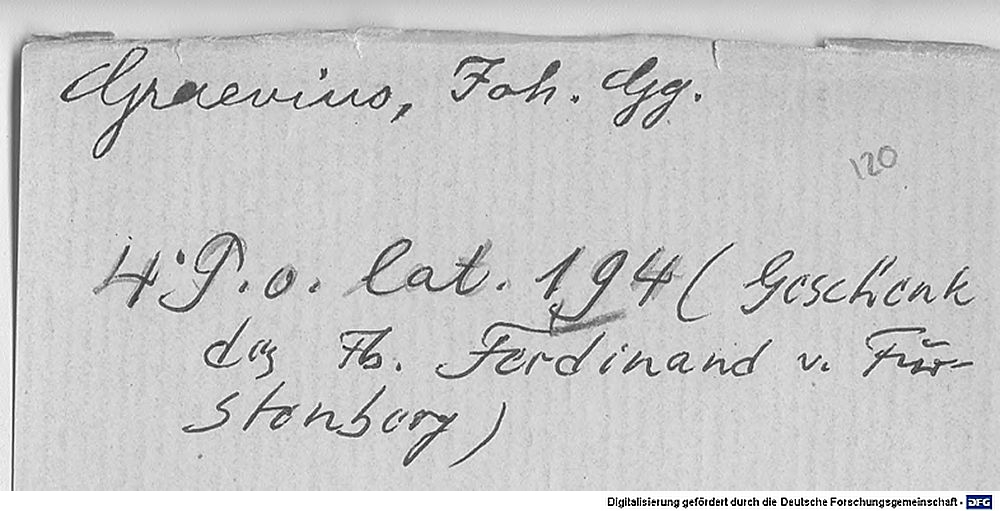 Graevius, Joh. Gg.
120
4° P. o. lat. 194 (Geschenk
des Fb. Ferdinand v. Für-
stenberg)
Digitalisierung gefördert durch die Deutsche Forschungsgemeinschaft - DFG